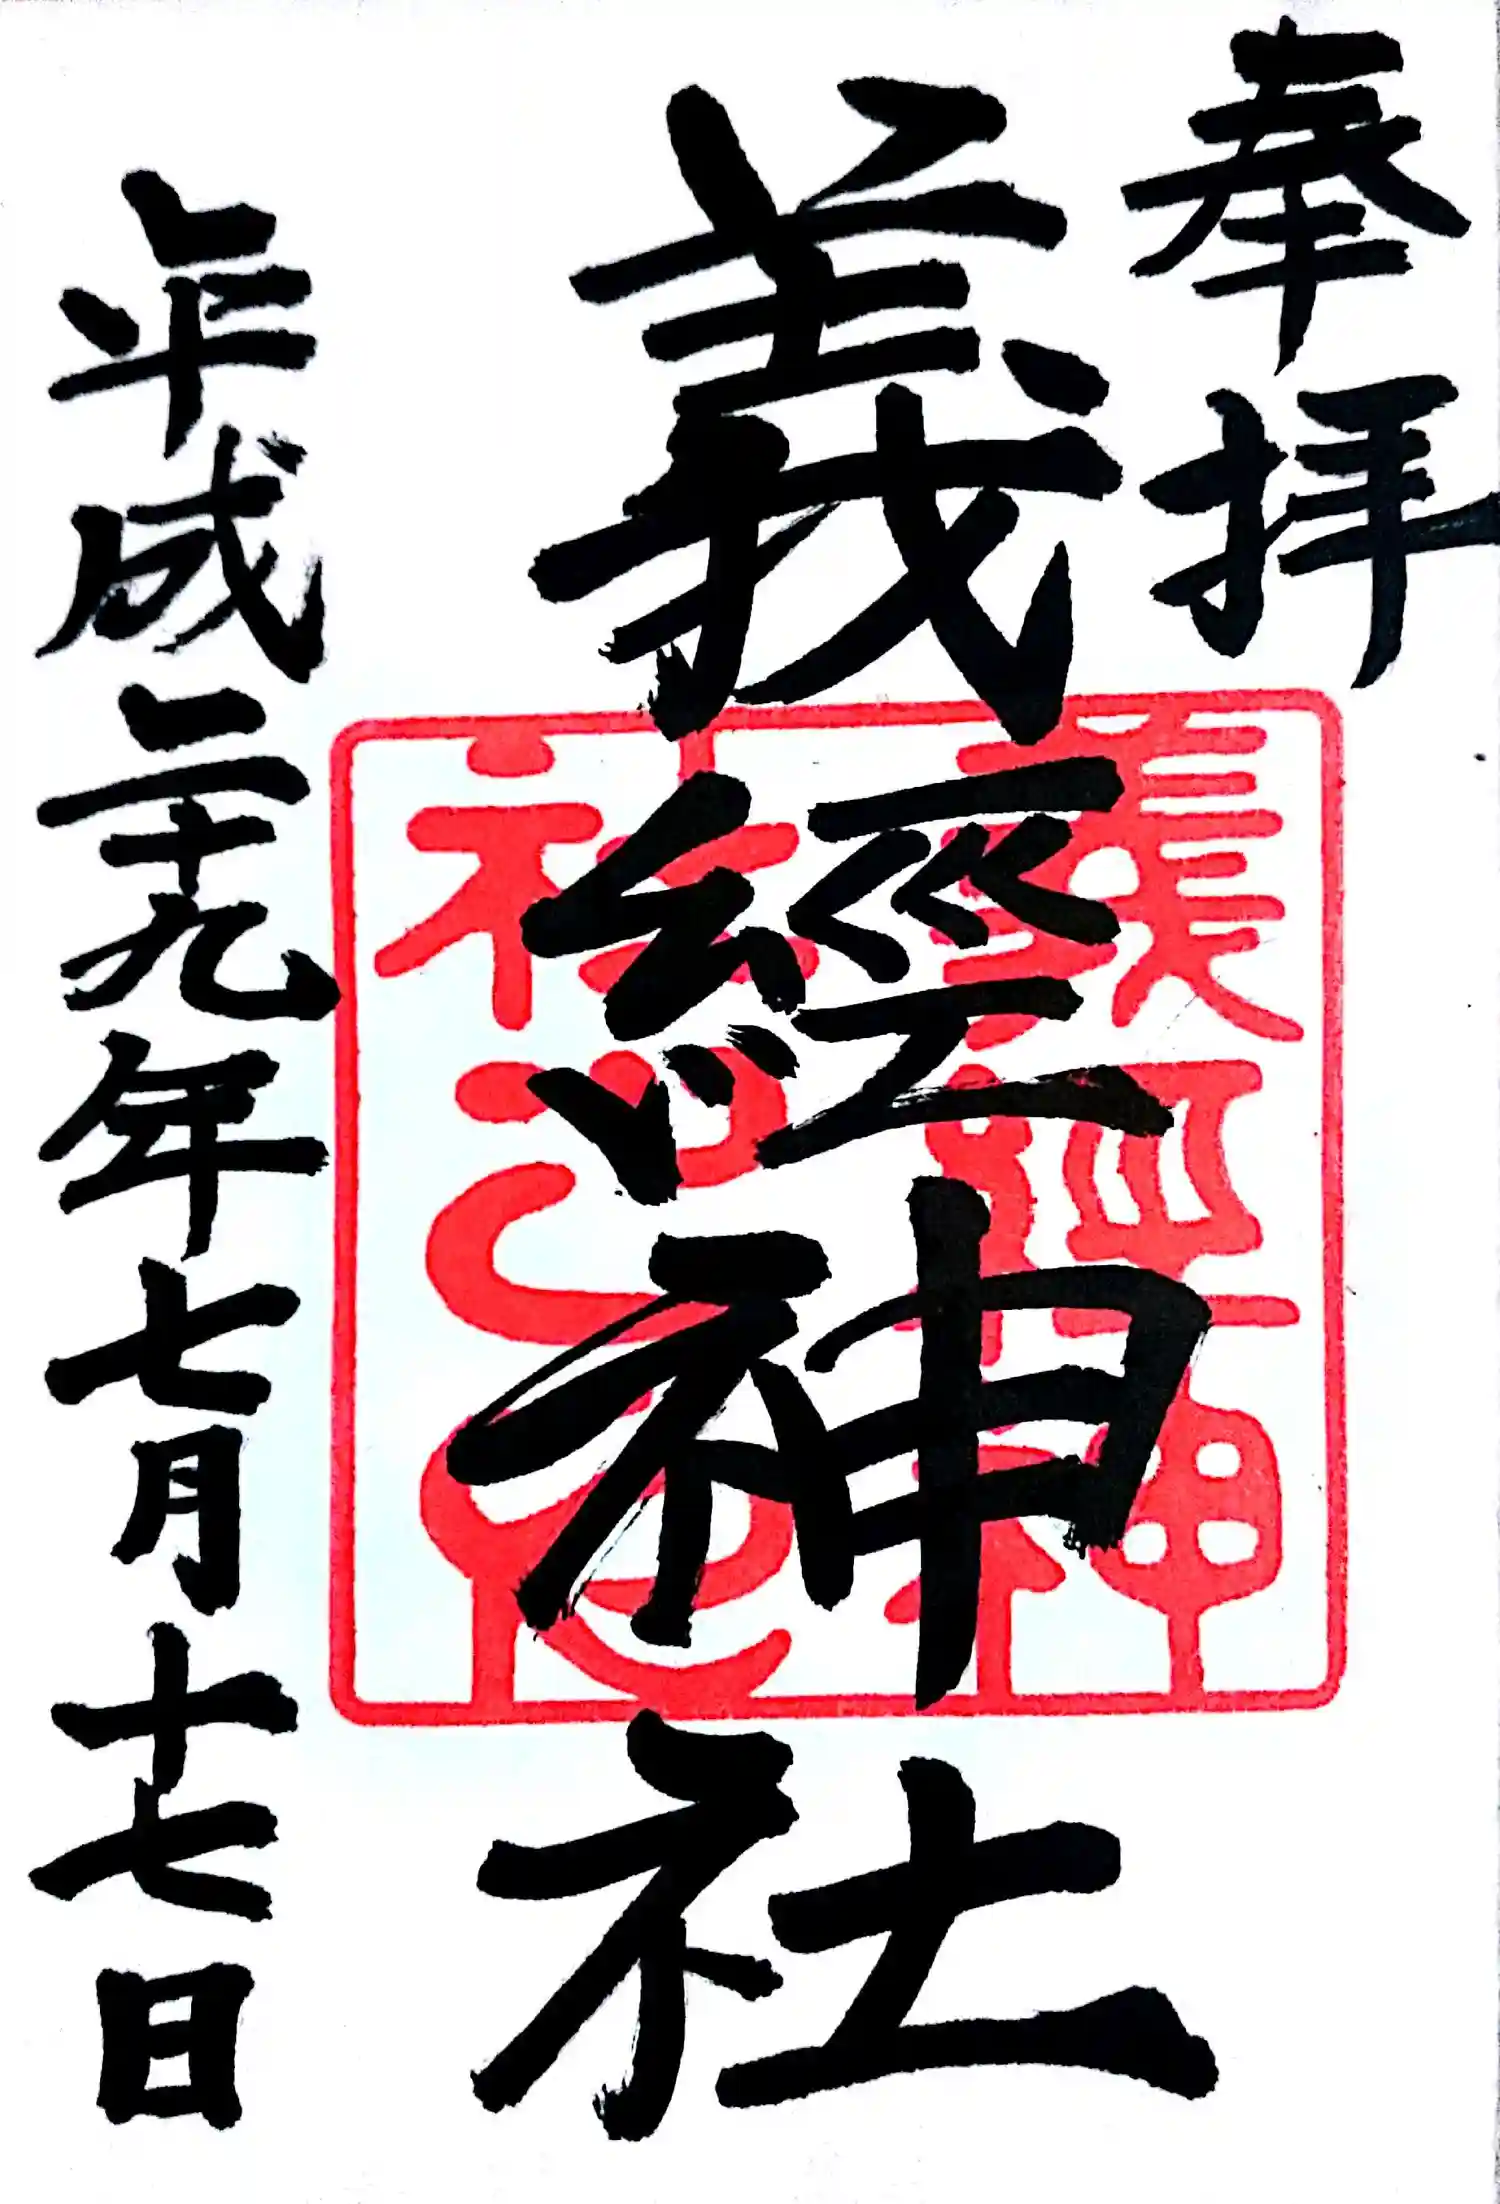 奉拝
義經神社
義經神
社之印
平成二十九年七月十七日